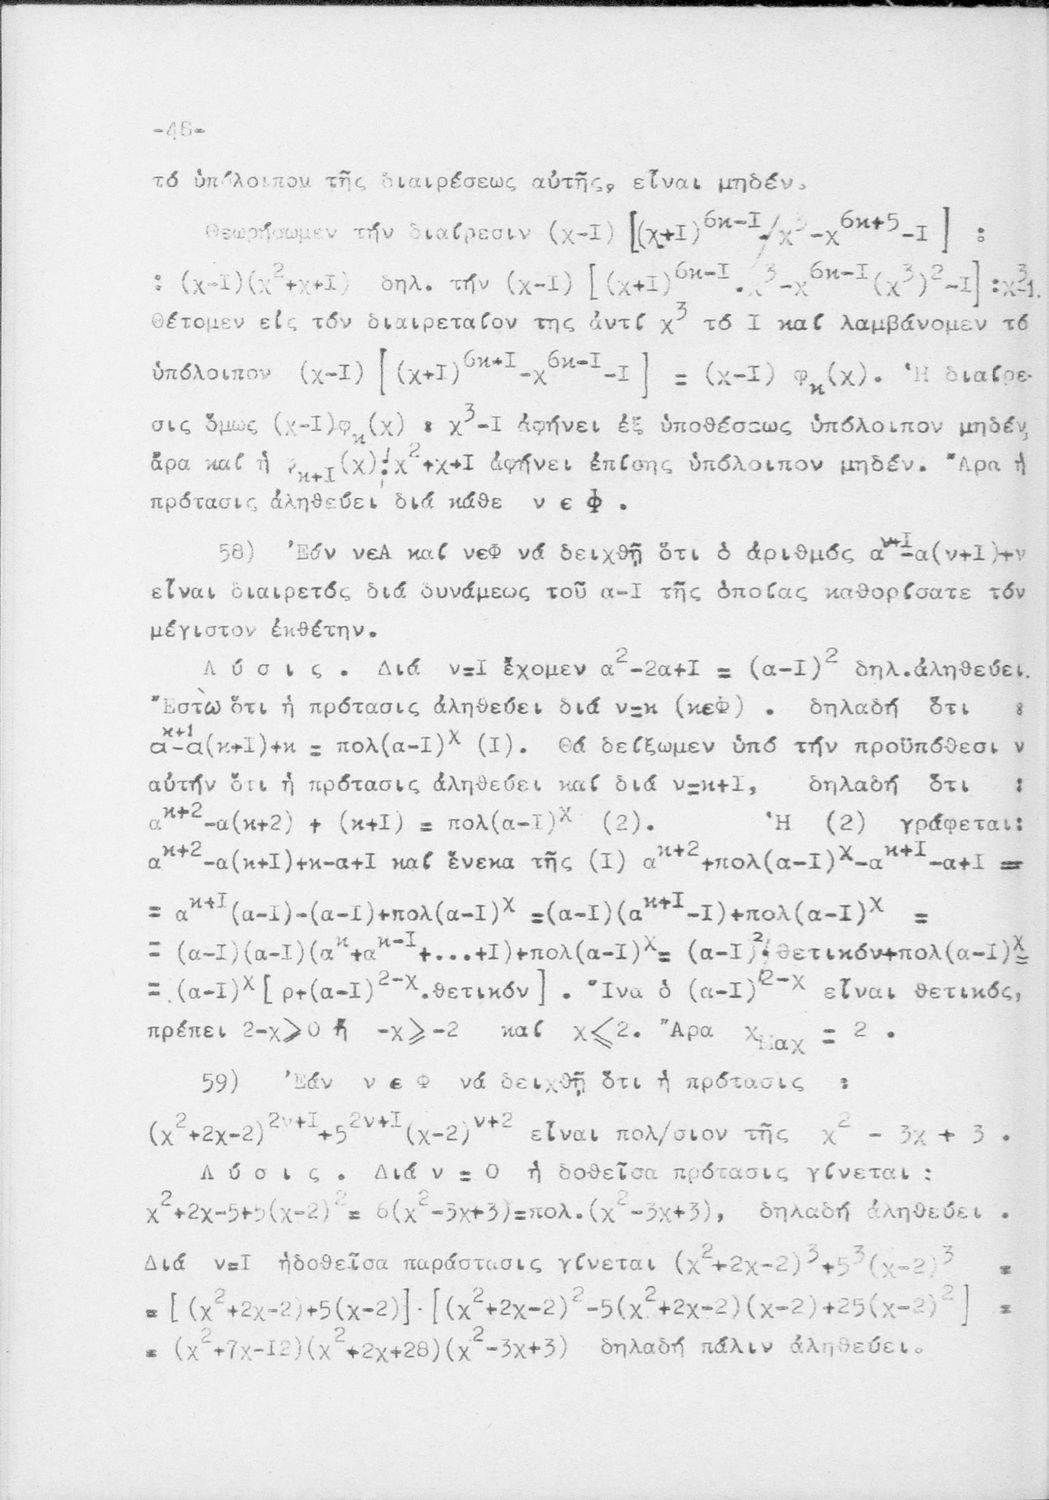 -46-
τό ὑπόλοιπον τῆς διαιρέσεως αὐτῆς, εἶναι μηδέν.
Θεωρήσωμεν τήν διαίρεσιν (χ-Ι) [(χ+Ι)^{6κ-Ι}/χ^3-χ^{6κ+5}-Ι] :
: (χ-Ι)(χ^2+χ+Ι) δηλ. τήν (χ-Ι) [(χ+Ι)^{6κ-Ι}.χ^3-χ^{6κ-Ι}(χ^3)^2-Ι]:χ^3-1.
Θέτομεν εἰς τόν διαιρεταῖον της ἀντί χ^3 τό Ι καί λαμβάνομεν τό
ὑπόλοιπον (χ-Ι) [(χ+Ι)^{6κ+Ι}-χ^{6κ-Ι}-Ι] = (χ-Ι) φ_κ(χ). Ἡ διαίρε-
σις ὅμως (χ-Ι)φ_κ(χ) : χ^3-Ι ἀφήνει ἐξ ὑποθέσεως ὑπόλοιπον μηδέν,
ἄρα καί ἡ φ_{κ+Ι}(χ):χ^2+χ+Ι ἀφήνει ἐπίσης ὑπόλοιπον μηδέν. Ἄρα ἡ
πρότασις ἀληθεύει διά κάθε ν ϵ Φ .
58) Ἐάν νϵΑ καί νϵΦ νά δειχθῇ ὅτι ὁ ἀριθμός α^{ν+Ι}-α(ν+Ι)+ν
εἶναι διαιρετός διά δυνάμεως τοῦ α-Ι τῆς ὁποίας καθορίσατε τόν
μέγιστον ἐκθέτην.
Λ ύ σ ι ς . Διά ν=Ι ἔχομεν α^2-2α+Ι = (α-Ι)^2 δηλ.ἀληθεύει.
Ἔστω ὅτι ἡ πρότασις ἀληθεύει διά ν=κ (κϵΦ) . δηλαδή ὅτι :
α^{κ+1}-α(κ+Ι)+κ = πολ(α-Ι)^χ (Ι). Θά δείξωμεν ὑπό τήν προϋπόθεσι ν
αὐτήν ὅτι ἡ πρότασις ἀληθεύει καί διά ν=κ+Ι, δηλαδή ὅτι :
α^{κ+2}-α(κ+2) + (κ+Ι) = πολ(α-Ι)^χ (2). Ἡ (2) γράφεται:
α^{κ+2}-α(κ+Ι)+κ-α+Ι καί ἕνεκα τῆς (Ι) α^{κ+2}+πολ(α-Ι)^χ-α^{κ+Ι}-α+Ι =
= α^{κ+Ι}(α-Ι)-(α-Ι)+πολ(α-Ι)^χ =(α-Ι)(α^{κ+Ι}-Ι)+πολ(α-Ι)^χ =
= (α-Ι)(α-Ι)(α^κ+α^{κ-Ι}+...+Ι)+πολ(α-Ι)^χ= (α-Ι)^2.θετικόν+πολ(α-Ι)^χ=
= (α-Ι)^χ[ ρ+(α-Ι)^{2-χ}.θετικόν] . Ἵνα ὁ (α-Ι)^{2-χ} εἶναι θετικός,
πρέπει 2-χ⩾0 ἤ -χ⩾-2 καί χ⩽2. Ἄρα χ_{Μαχ} = 2 .
59) Ἐάν ν ϵ Φ νά δειχθῇ ὅτι ἡ πρότασις :
(χ^2+2χ-2)^{2ν+Ι}+5^{2ν+Ι}(χ-2)^{ν+2} εἶναι πολ/σιον τῆς χ^2 - 3χ + 3 .
Λ ύ σ ι ς . Διά ν = 0 ἡ δοθεῖσα πρότασις γίνεται :
χ^2+2χ-5+5(χ-2)^2= 6(χ^2-3χ+3)=πολ.(χ^2-3χ+3), δηλαδή ἀληθεύει .
Διά ν=Ι ἡδοθεῖσα παράστασις γίνεται (χ^2+2χ-2)^3+5^3(χ-2)^3 =
= [(χ^2+2χ-2)+5(χ-2)].[(χ^2+2χ-2)^2-5(χ^2+2χ-2)(χ-2)+25(χ-2)^2] =
= (χ^2+7χ-12)(χ^2+2χ+28)(χ^2-3χ+3) δηλαδή πάλιν ἀληθεύει.